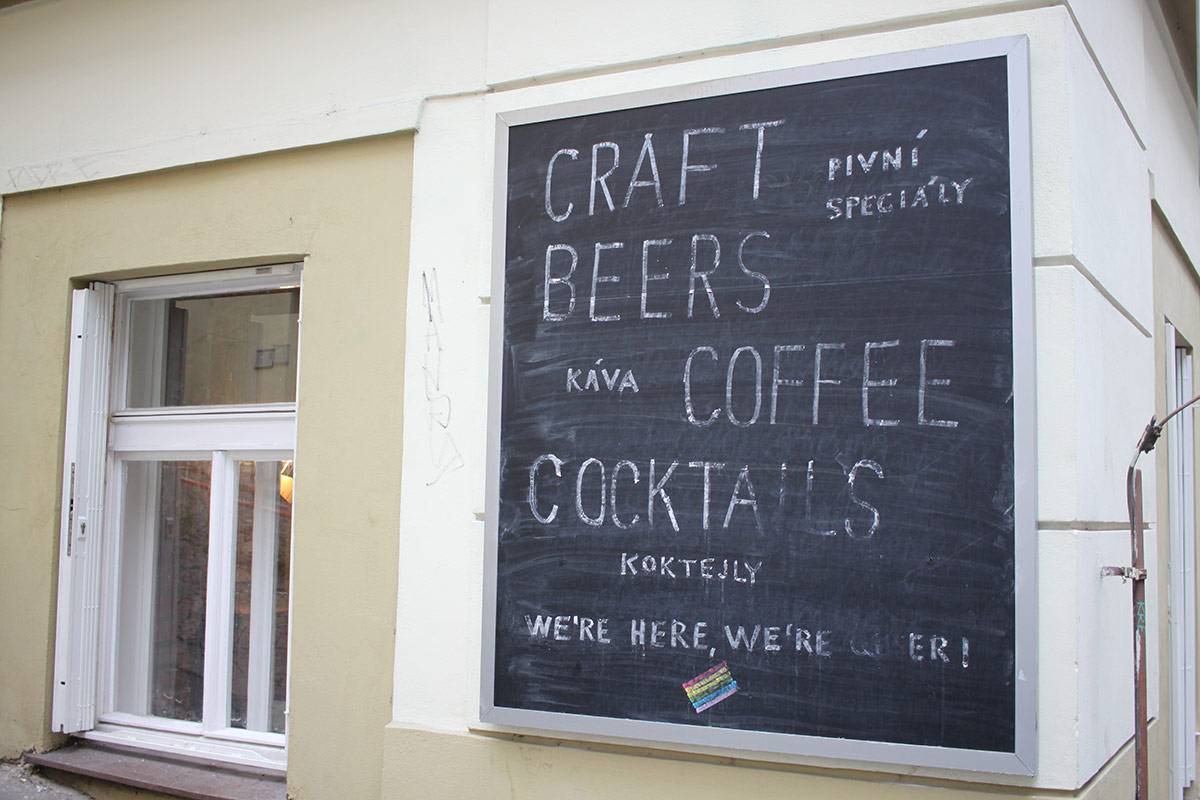 CRAFT
PIVNÍ
SPECIÁLY
BEERS
KÁVA COFFEE
COCKTAILS
KOKTEJLY
WE'RE HERE, WE'RE QUEER!